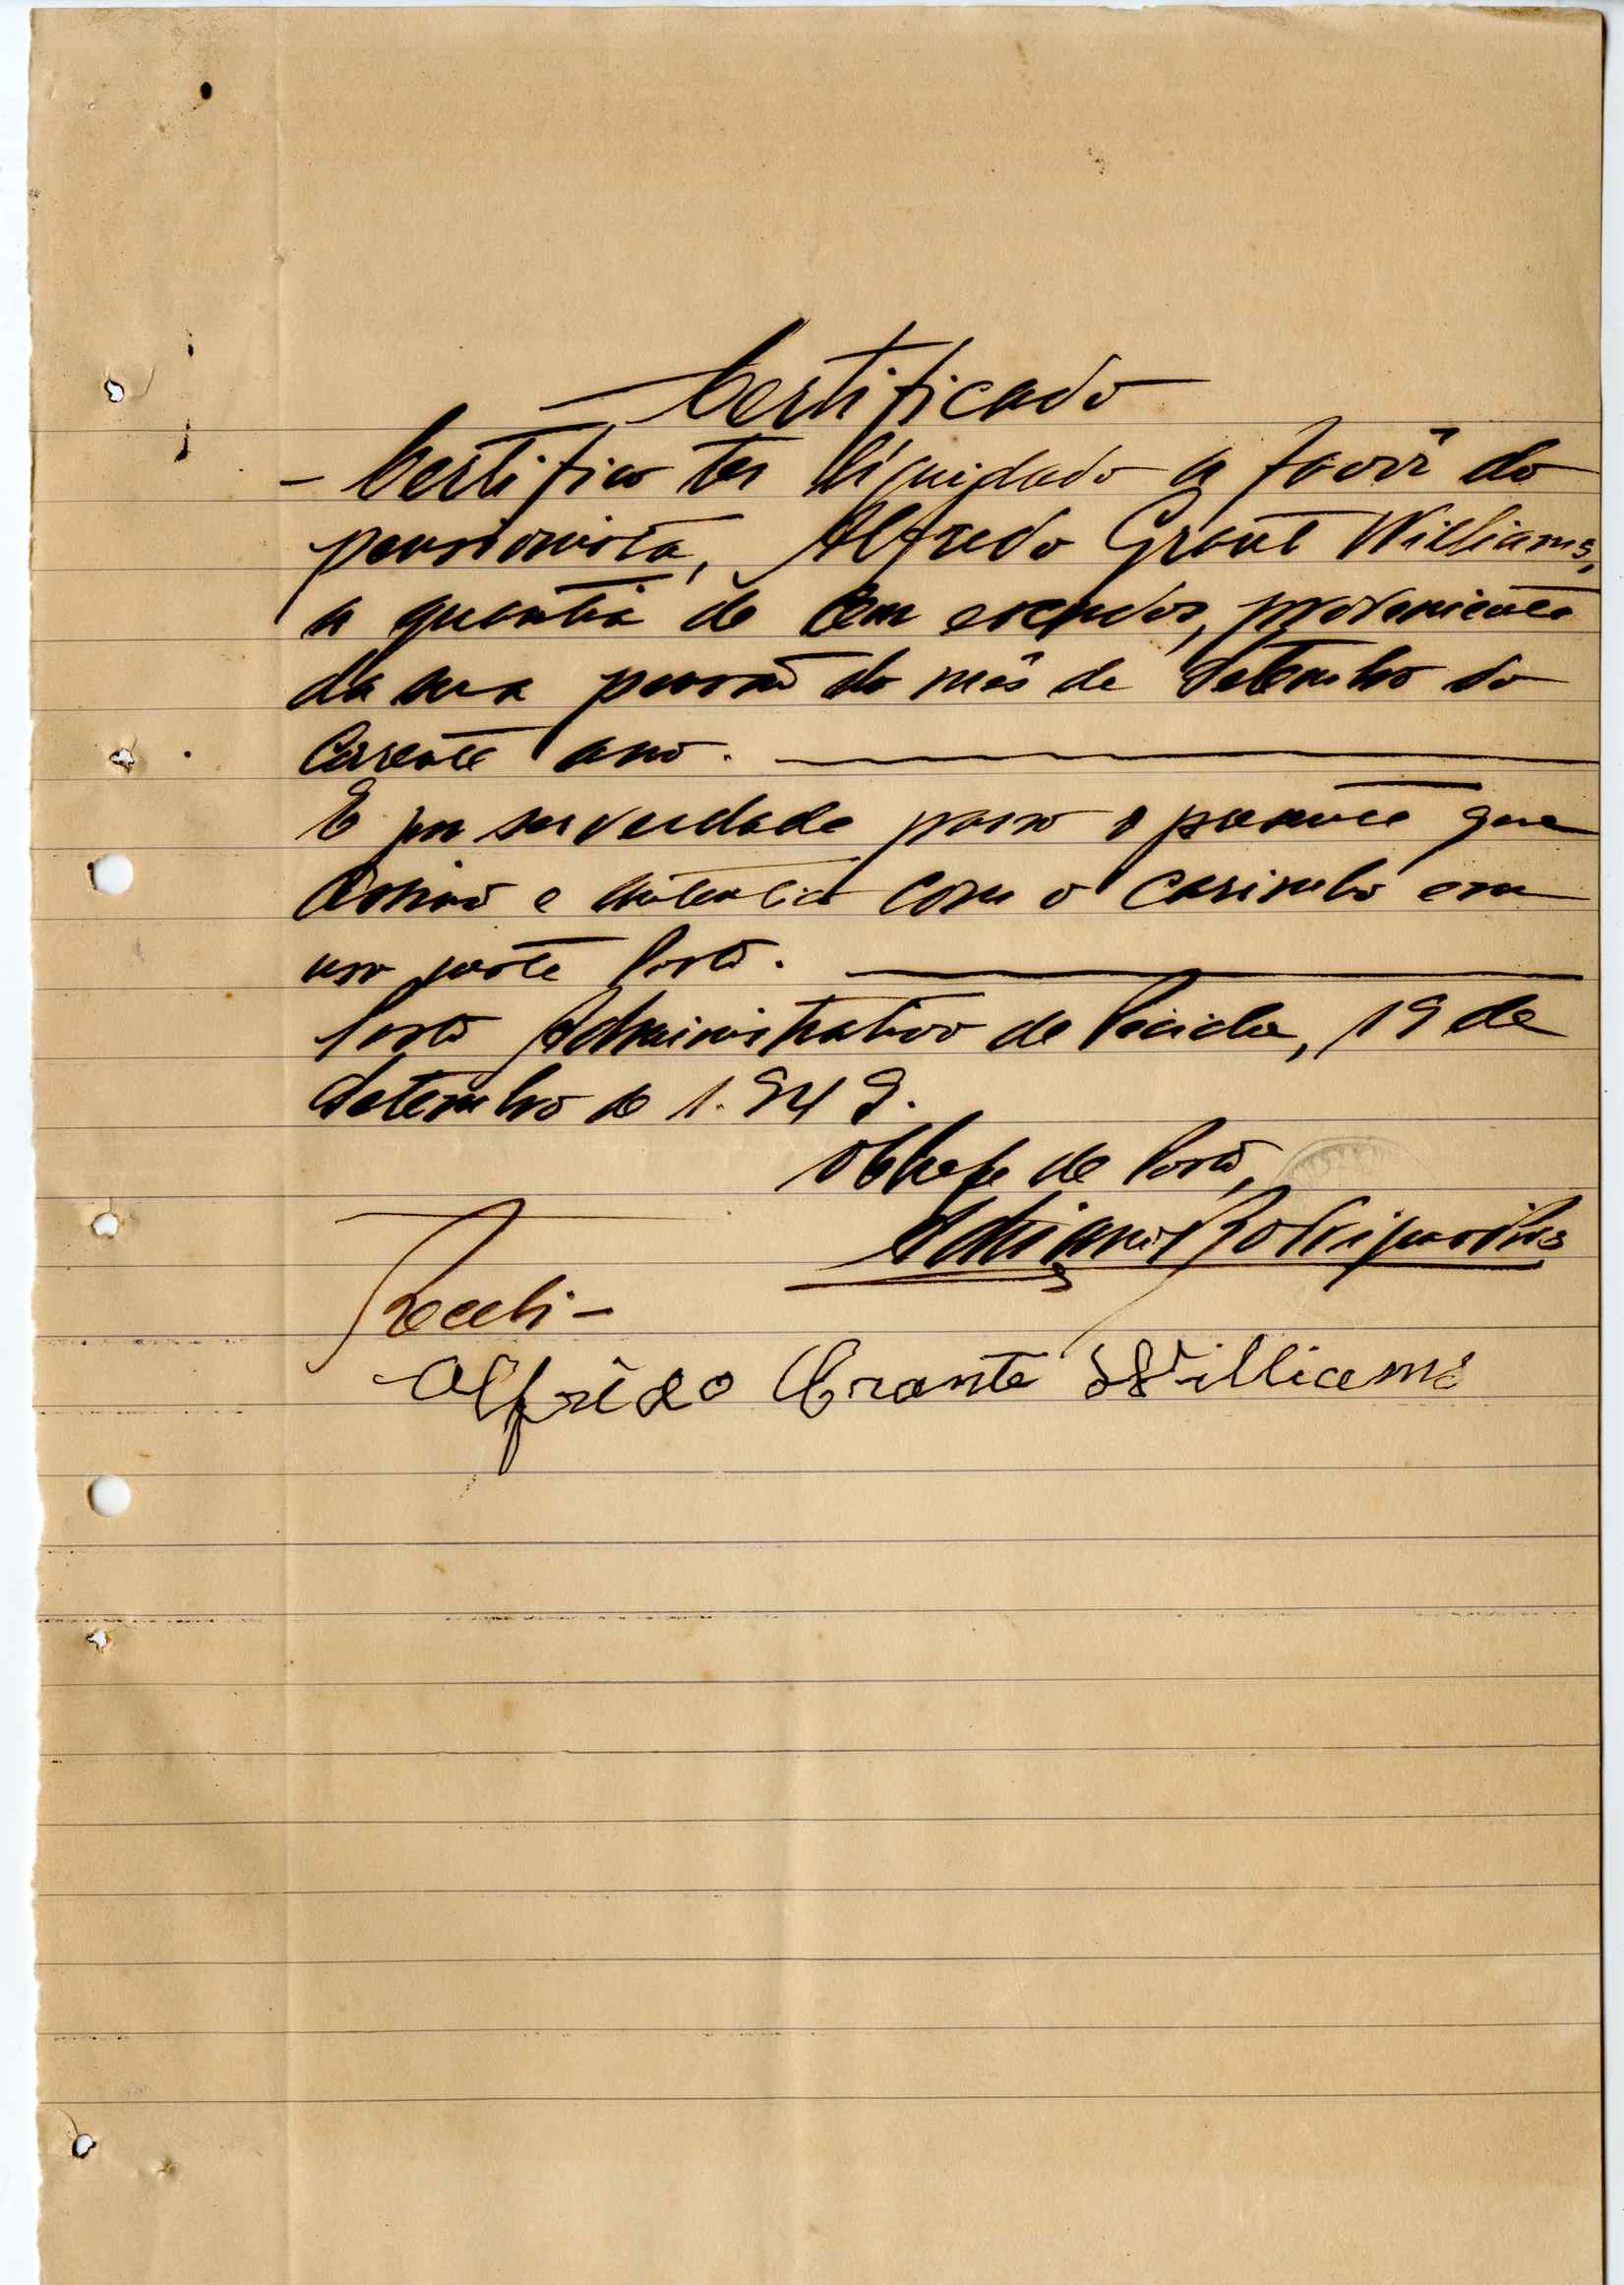 Certificado
- Certifico ter liquidado a favôr do
pensionista, Alfredo Grant Williams,
a quantia de Cem escudos, proveniente
da sua pensão do mês de Setembro do
Corrente ano.
E por ser verdade passo o presente que
assino e autentico com o carimbo em
uso neste Posto.
Posto Administrativo de 19 de
Setembro de 1.949.
O Chefe de Posto,
Adriano
Recebi -
Alfrêdo Grante Williams